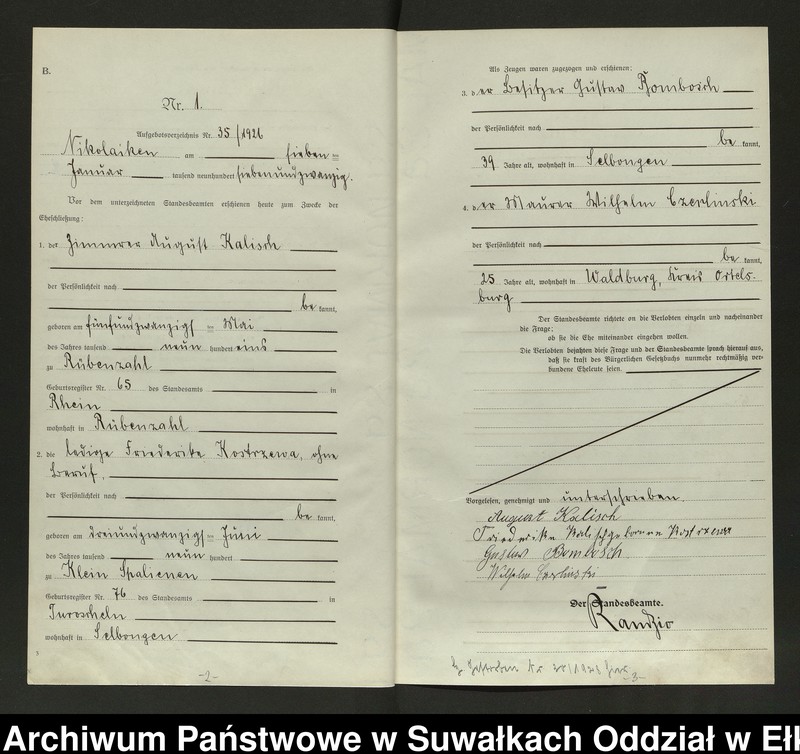 B.
Nr. 1.
Aufgebotsverzeichnis Nr. 35/1926
Nikolaiken am sieben =
Januar tausend neunhundert siebenundzwanzig.
Vor dem unterzeichneten Standesbeamten erschienen heute zum Zwecke der
Eheschließung:
1. der Zimmrer August Kalisch
der Persönlichkeit nach
be kannt,
geboren am fünfundzwanzigs = Mai
des Jahres tausend neun hundert eins
zu Rübenzahl
Geburtsregister Nr. 65 des Standesamts in
Rhein
wohnhaft in Rübenzahl
2. die ledige Friederike Kostrzewa, ohne
Beruf,
der Persönlichkeit nach
be kannt,
geboren am dreiundzwanzigs = Juni
des Jahres tausend neun hundert
zu Klein Spalienen
Geburtsregister Nr. 76 des Standesamts in
Turoscheln
wohnhaft in Selbongen
-2-
Als Zeugen waren zugezogen und erschienen:
3. der Besitzer Gustav Bombosch
der Persönlichkeit nach
be kannt,
39 Jahre alt, wohnhaft in Selbongen
4. der Maurer Wilhelm Czerlinski
der Persönlichkeit nach
be kannt,
25 Jahre alt, wohnhaft in Waldburg, Kreis Ortels-
burg
Der Standesbeamte richtete an die Verlobten einzeln und nacheinander
die Frage:
ob sie die Ehe miteinander eingehen wollen.
Die Verlobten bejahten diese Frage und der Standesbeamte sprach hierauf aus,
daß sie kraft des Bürgerlichen Gesetzbuchs nunmehr rechtmäßig ver-
bundene Eheleute seien.
Vorgelesen, genehmigt und unterschrieben.
August Kalisch
Friederike Kalisch geborene Kostrzewa
Gustav Bombosch
Wilhelm Czerlinski
Der Standesbeamte.
Randzio
-3-
Archiwum Państwowe w Suwałkach Oddział w Eł